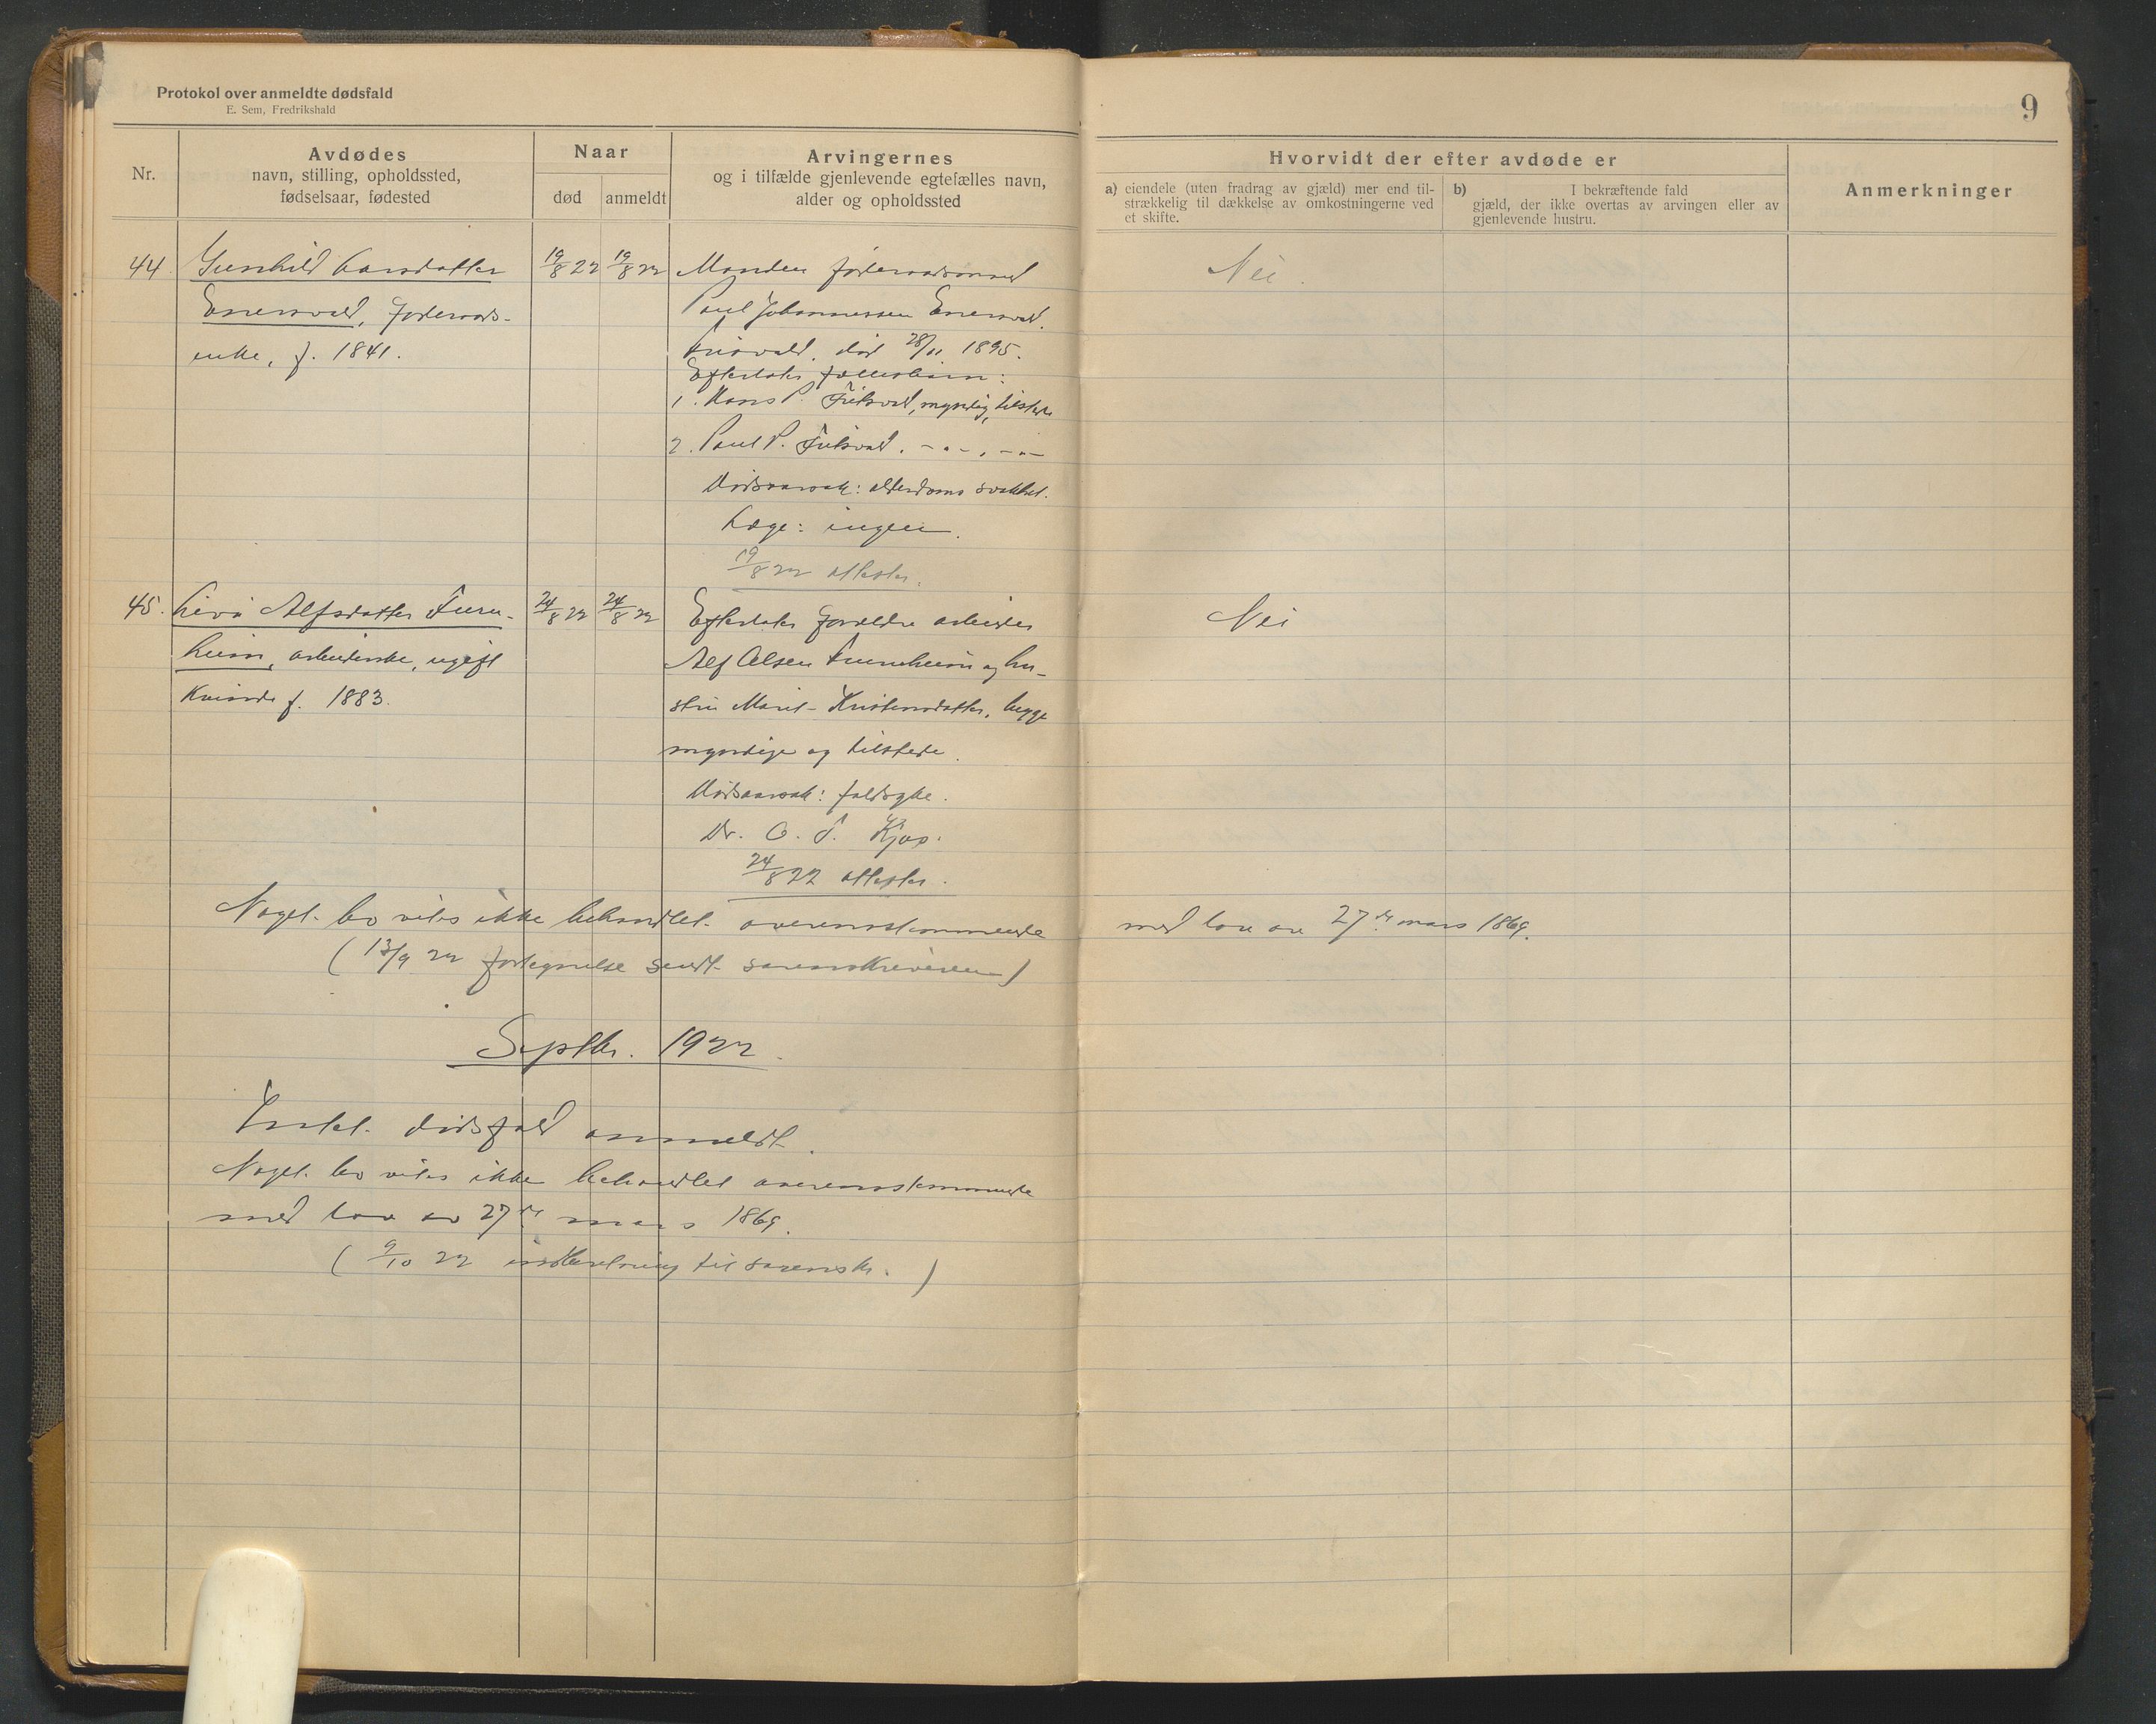 Protokol over anmeldte dødsfald
E. Sem, Fredrikshald
9
Nr.
Avdødes
navn, stilling, opholdssted,
fødselsaar, fødested
Naar
død
anmeldt
Arvingernes
og i tilfælde gjenlevende egtefælles navn,
alder og opholdssted
Hvorvidt der efter avdøde er
a) eiendele (uten fradrag av gjæld) mer end til-
strækkelig til dækkelse av omkostningerne ved
et skifte.
b) I bekræftende fald
gjæld, der ikke overtas av arvingen eller av
gjenlevende hustru.
Anmerkninger
44. Gunhild Larsdatter
Enersvold, foderaads-
enke, f. 1841.
19/8 22
19/8 22
Manden foderaadsmand
Paul Johannessen Enersvold.
død 28/11 1895.
Efterlater fællesbarn:
1. Hans P. myndig, tilstede
2. Paul P.
Dødsaarsak: alderdoms svakhet.
Læge: ingen.
19/8 22 attester.
Nei.
45. Livi Alfsdatter Furu-
heim, arbeiderske, ugift
Kvinde f. 1883.
24/8 22
24/8 22
Efterlater forældre arbeider
Alf Olsen Furuheim og hu-
stru Marit Kristensdatter, begge
myndige og tilstede.
Dødsaarsak: faldsyke.
Dr. O. T. Kjos.
24/8 22 attester.
Nei
Noget bo vites ikke behandlet overensstemmende med lov av 27de mars 1869.
(13/9 22 fortegnelse sendt sorenskriveren)
Septbr. 1922.
Intet dødsfald anmeldt.
Noget bo vites ikke behandlet overensstemmende
med lov av 27de mars 1869.
(9/10 22 indberetning til sorenskr.)